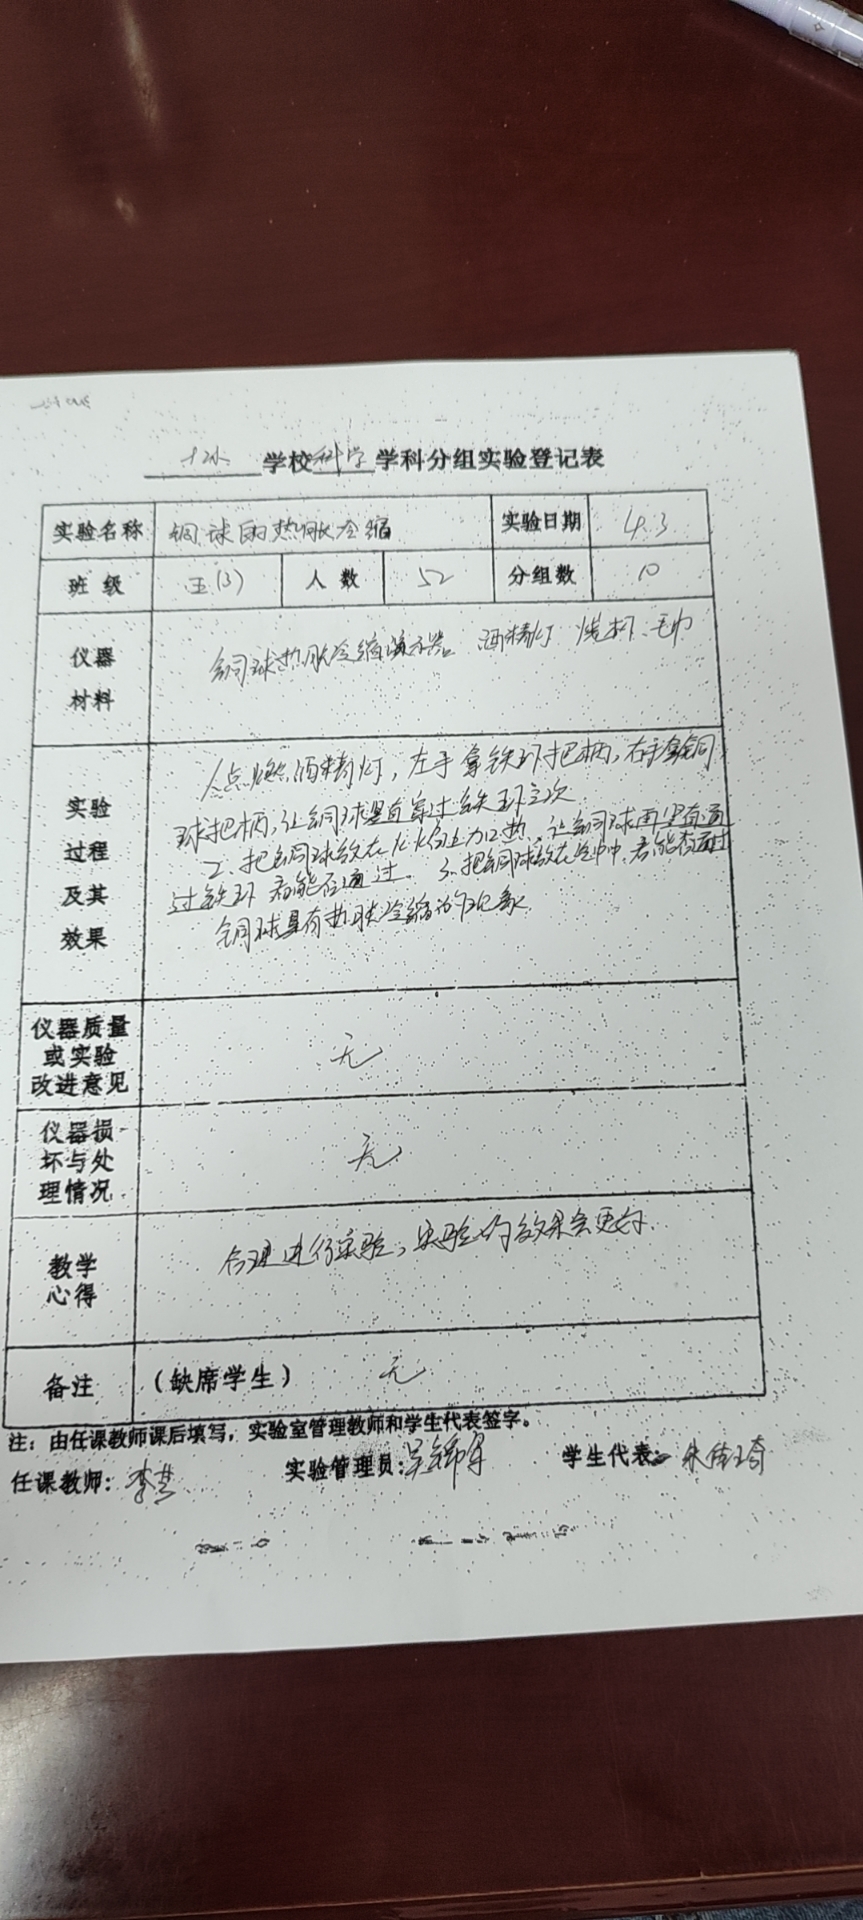 学校科学学科分组实验登记表
实验名称 铜球的热胀冷缩 实验日期 4.3
班级 五(3) 人数 52 分组数 10
仪器材料 铜球热胀冷缩演示器 酒精灯 烧杯、毛巾
实验过程及其效果
1、点燃酒精灯,左手拿铁环把柄,右手拿铜
球把柄,让铜球垂直穿过铁环三次
2、把铜球放在火焰上加热、让铜球再垂直通
过铁环 看能否通过. 3、把铜球放在 中,看能否通过
铜球具有热胀冷缩的现象
仪器质量或实验改进意见 无
仪器损坏与处理情况 无
教学心得 合理进行实验,实验的效果会更好.
备注 (缺席学生) 无
注:由任课教师课后填写,实验室管理教师和学生代表签字。
任课教师: 李 实验管理员: 吴锦 学生代表: